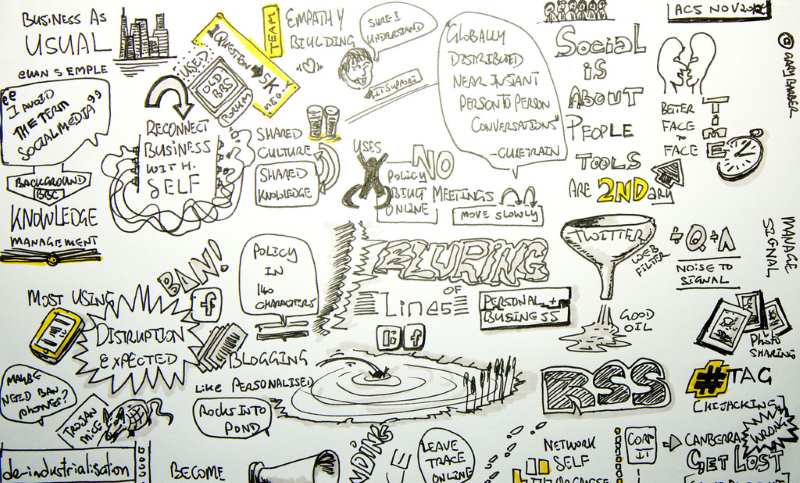 BUSINESS AS
USUAL
EUAN SEMPLE
"I AVOID
THE TERM
SOCIAL MEDIA"
BACKGROUND
BBC
KNOWLEDGE
MANAGEMENT
USED
QUESTION
5K
OLD
BBS
FORUM
TEAM
EMPATHY
BIULDING
SURE I
UNDERSTAND
RECONNECT
BUSINESS
WITH
SELF
SHARED
CULTURE
SHARED
KNOWLEDGE
USES
NO
POLICY
BIULT MEETINGS
ONLINE
MOVE SLOWLY
"GLOBALLY
DISTRIBUTED
NEAR INSTANT
PERSON TO PERSON
CONVERSATIONS"
-CLUETRAIN
SOCIAL
IS
ABOUT
PEOPLE
TOOLS
ARE 2NDARY
BETER
FACE TO
FACE
TIME
ACS NOV
@GARYBARBER
MOST USING
BAN!
f
DISRUPTION
EXPECTED
MAYBE
NEED BAN
PHONES?
POLICY
IN
140
CHARACTERS
BLURING
OF
LINES
PERSONAL +
BUSINESS
f
BLOGGING
LIKE PERSONALISED
ROCKS INTO
POND
TWITTER
WEB
FILTER
GOOD
OIL
Q + A
NOISE TO
SIGNAL
MANAGE
SIGNAL
PHOTO
SHARING
RSS
#TAG
CHIJACKING
WRONG
CANBERRA
GET LOST
de-industrialisation
BECOME
LEAVE
TRACE
ONLINE
NETWORK
SELF